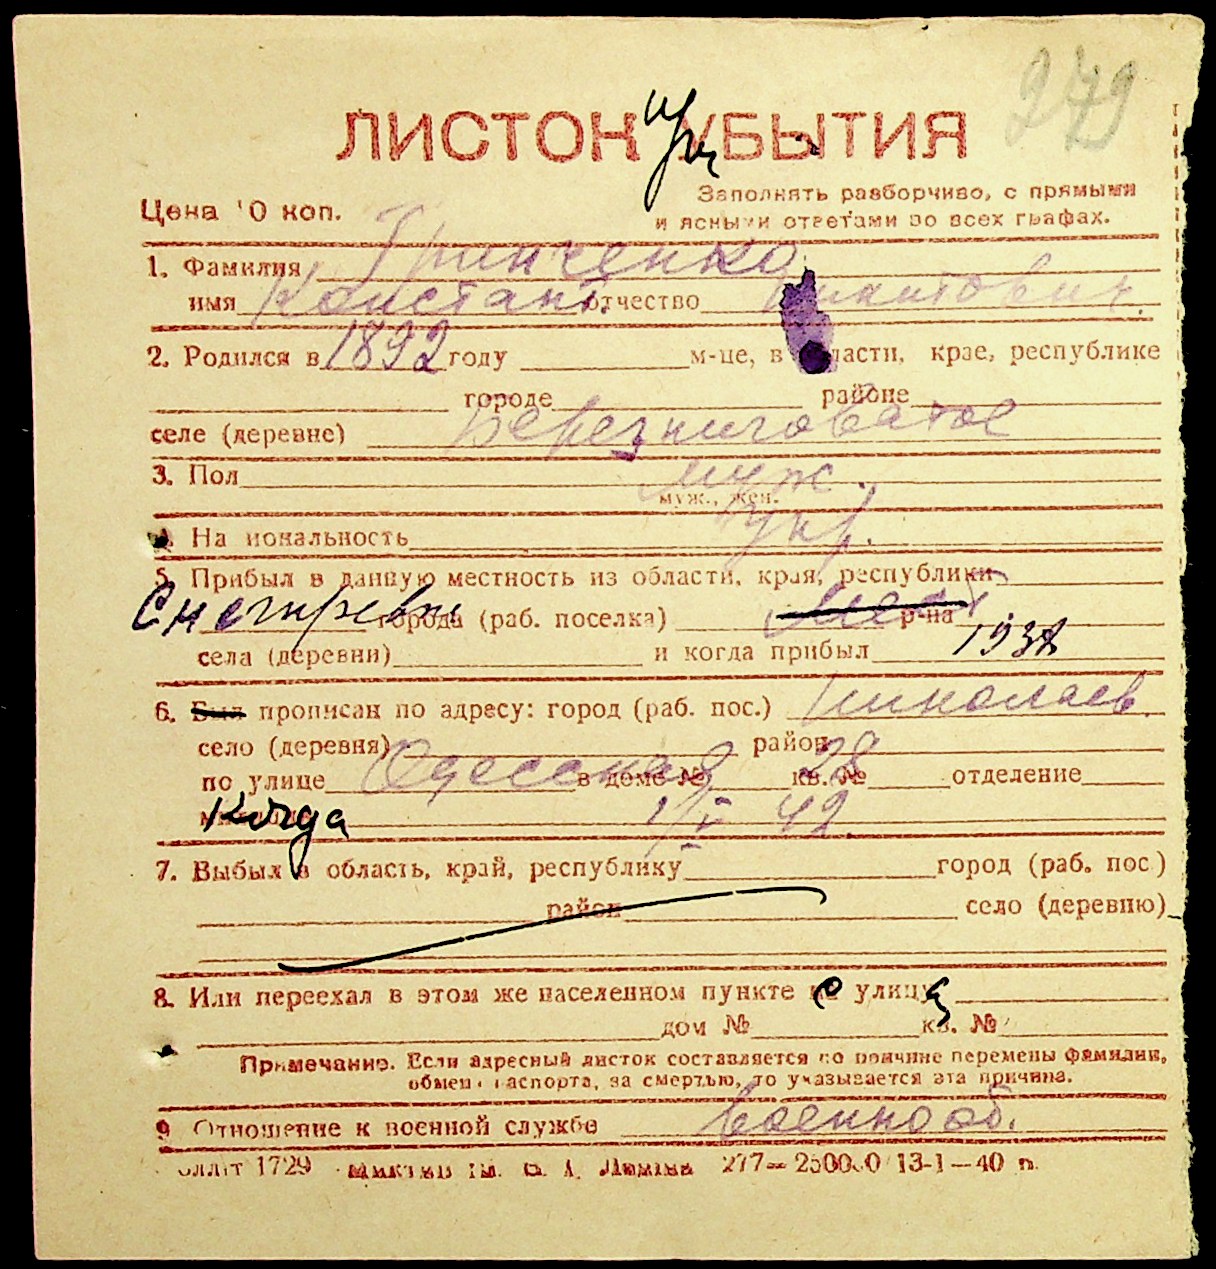 279
ЛИСТОК УБЫТИЯ
Цена 10 коп.
Заполнять разборчиво, с прямыми
и ясными ответами во всех графах.
1. Фамилия Гринченко
имя Констант. отчество Никитович.
2. Родился в 1892 году м-це, в области, крае, республике
городе районе
селе (деревне) Березниговатое
3. Пол муж.
муж., жен.
4. Национальность укр.
5. Прибыл в данную местность из области, края, республики
Снегиревк города (раб. поселка) р-на
села (деревни) и когда прибыл 1932
6. Был прописан по адресу: город (раб. пос.) Николаев.
село (деревня) район
по улице Одесская в доме № 28 кв. № отделение
милиции Когда 1/V 42.
7. Выбыл в область, край, республику город (раб. пос.)
район село (деревню)
8. Или переехал в этом же населенном пункте на улицу
дом № кв. №
Примечание. Если адресный листок составляется по причине перемены фамилии,
обмена паспорта, за смертью, то указывается эта причина.
9. Отношение к военной службе военнооб.
1729 277— 250000 13-1—40 п.